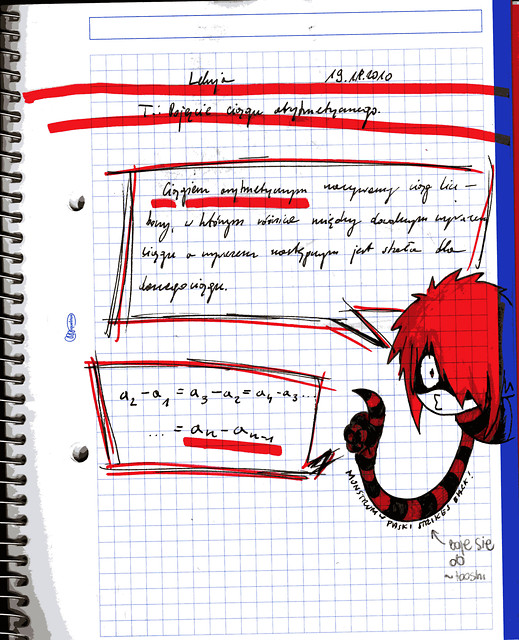 Lekcja 19.10.2010
T.: Pojęcie ciągu arytmetycznego.
Ciągiem arytmetycznym nazywamy ciąg licz–
bowy, w którym różnica między dowolnym wyrazem
ciągu a wyrazem następnym jest stała dla
danego ciągu.
a₂ – a₁ = a₃ – a₂ = a₄ – a₃ ...
... = aₙ – aₙ₋₁
MONSTRUM W PASKI STRIKES BACK!
Boję się
oo
~taoshi